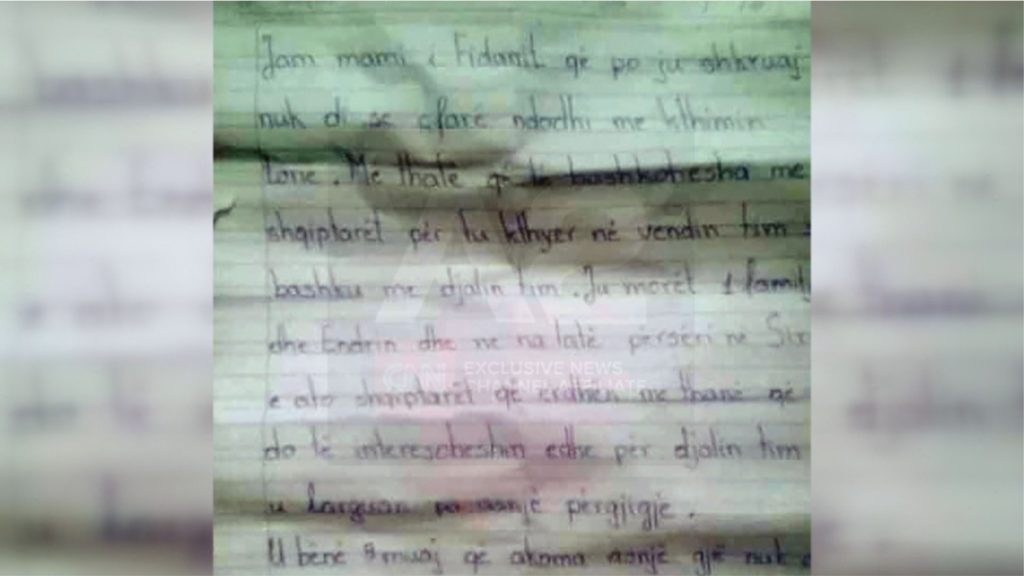 Jam mami i Fidanit që po ju shkruaj
nuk di se çfarë ndodhi me kthimin
tone. Më thatë që të bashkohesha me
shqiptarët për tu kthyer në vendin tim
bashku me djalin tim. Ju morët 1 famil
dhe Endrin dhe ne na latë përsëri ne Sir
EXCLUSIVE NEWS
CHANNEL AFFILIATE
e ato shqiptarët që erdhën me thanë që
do të interescheshin edhe për djalin tim
u larguan pa asnjë përgjigjë.
U bënë muaj që akoma asnjë gjë nuk